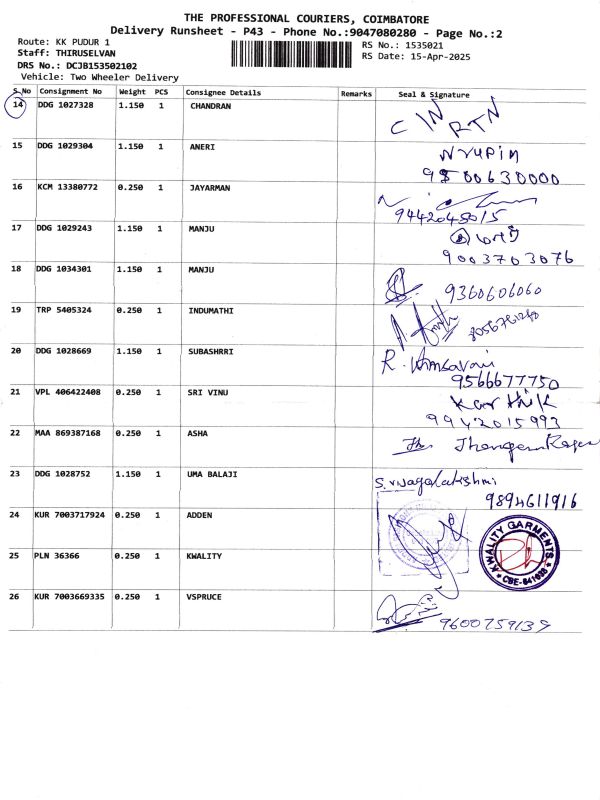 THE PROFESSIONAL COURIERS, COIMBATORE
Delivery Runsheet - P43 - Phone No.:9047080280 - Page No.:2
Route: KK PUDUR 1
RS No.: 1535021
Staff: THIRUSELVAN
RS Date: 15-Apr-2025
DRS No.: DCJB153502102
Vehicle: Two Wheeler Delivery
S.No Consignment No Weight PCS Consignee Details Remarks Seal & Signature
14 DDG 1027328 1.150 1 CHANDRAN
RTN
15 DDG 1029304 1.150 1 ANERI
16 KCM 13380772 0.250 1 JAYARMAN
9442048015
17 DDG 1029243 1.150 1 MANJU
9003703076
18 DDG 1034301 1.150 1 MANJU
9360606060
19 TRP 5405324 0.250 1 INDUMATHI
20 DDG 1028669 1.150 1 SUBASHRRI
9566677750
21 VPL 406422408 0.250 1 SRI VINU
Karthik
9942015993
22 MAA 869387168 0.250 1 ASHA
23 DDG 1028752 1.150 1 UMA BALAJI
9894611916
24 KUR 7003717924 0.250 1 ADDEN
25 PLN 36366 0.250 1 KWALITY
KWALITY GARMENTS
26 KUR 7003669335 0.250 1 VSPRUCE
9600759139